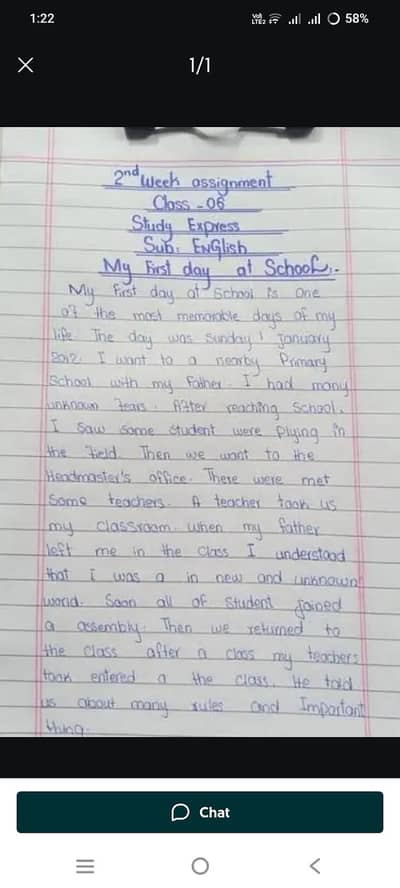 1:22
Vo) LTE2 58%
1/1
2nd week assignment
Class - 06
Study Express
Sub: English
My First day at School:-
My First day at School is One
of the most memorable days of my
life. The day was Sunday 1 January
2012. I want to a nearby Primary
School with my Father. I had many
unknown fears. After reaching School.
I saw some student were plying in
the field. Then we want to the
Headmaster's office. There were met
Some teachers. A teacher took us
my classroom. when my father
left me in the class I understood
that I was a in new and unknown
world. Soon all of student joined
a assembly. Then we returned to
the class after a class my teachers
took entered a the class. He told
us about many rules and Important
thing.
Chat